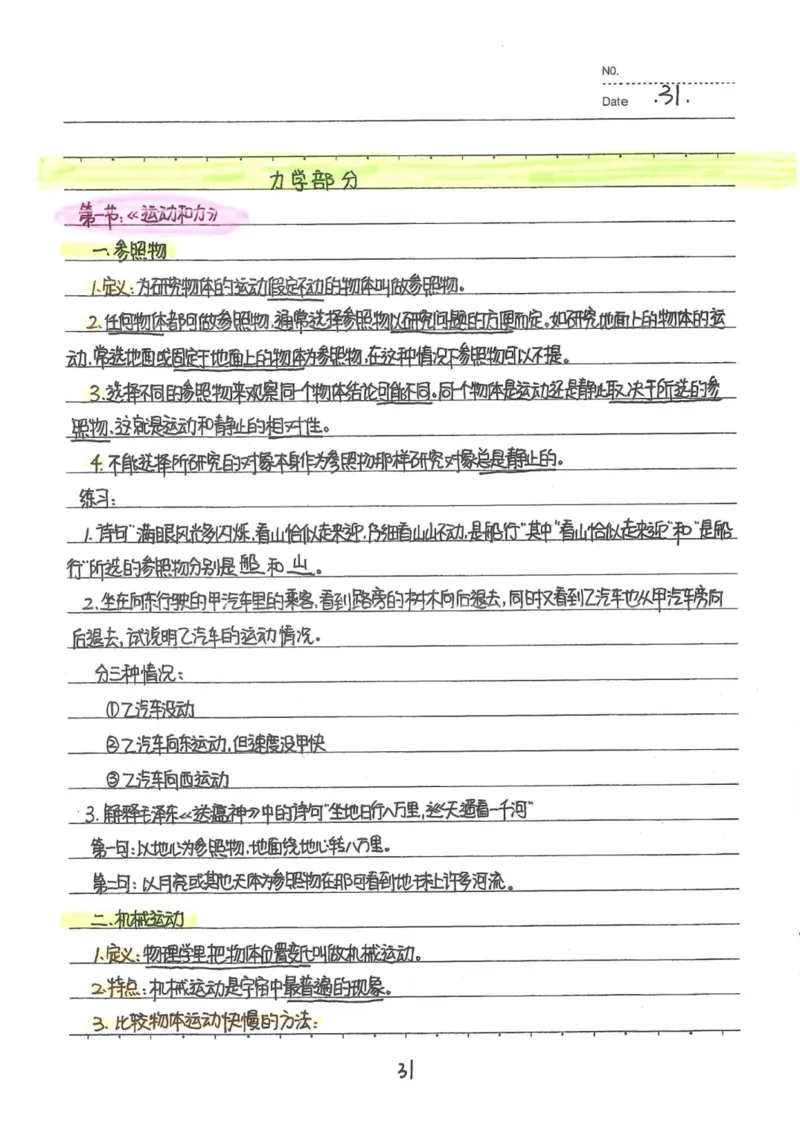 NO.
Date .31.
力学部分
第一节:《运动和力》
一.参照物
1.定义:为研究物体的运动假定不动的物体叫做参照物。
2.任何物体都可做参照物,通常选择参照物以研究问题的方便而定。如研究地面上的物体的运
动,常选地面或固定于地面上的物体为参照物,在这种情况下参照物可以不提。
3.选择不同的参照物来观察同一个物体结论可能不同。同一个物体是运动还是静止取决于所选的参
照物,这就是运动和静止的相对性。
4.不能选择所研究的对象本身作为参照物那样研究对象总是静止的。
练习:
1.诗句"满眼风光多闪烁,看山恰似走来迎,仔细看山山不动,是船行"其中"看山恰似走来迎"和"是船
行"所选的参照物分别是船和山。
2.坐在向东行驶的甲汽车里的乘客,看到路旁的树木向后退去,同时又看到乙汽车也从甲汽车旁向
后退去,试说明乙汽车的运动情况。
分三种情况:
①乙汽车没动
②乙汽车向东运动,但速度没甲快
③乙汽车向西运动
3.解释毛泽东《送瘟神》中的诗句"坐地日行八万里,巡天遥看一千河"
第一句:以地心为参照物,地面绕地心转八万里。
第二句:以月亮或其他天体为参照物在那可看到地球上许多河流。
二.机械运动
1.定义:物理学里把物体位置变化叫做机械运动。
2.特点:机械运动是宇宙中最普遍的现象。
3.比较物体运动快慢的方法:
31